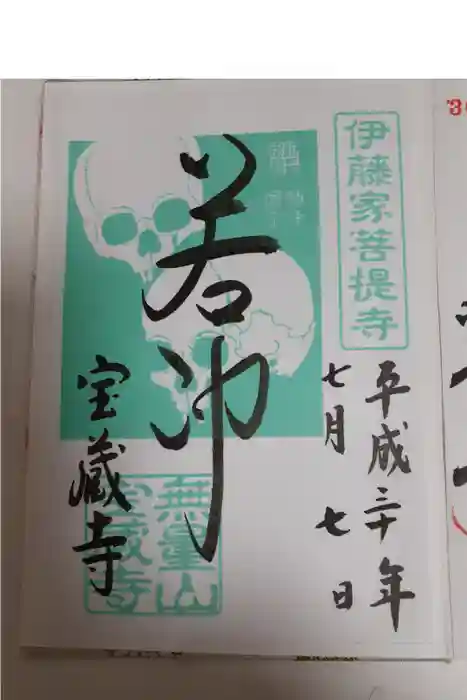 伊藤家菩提寺
平成三十年
七月七日
若冲
宝蔵寺
無量山
宝蔵寺